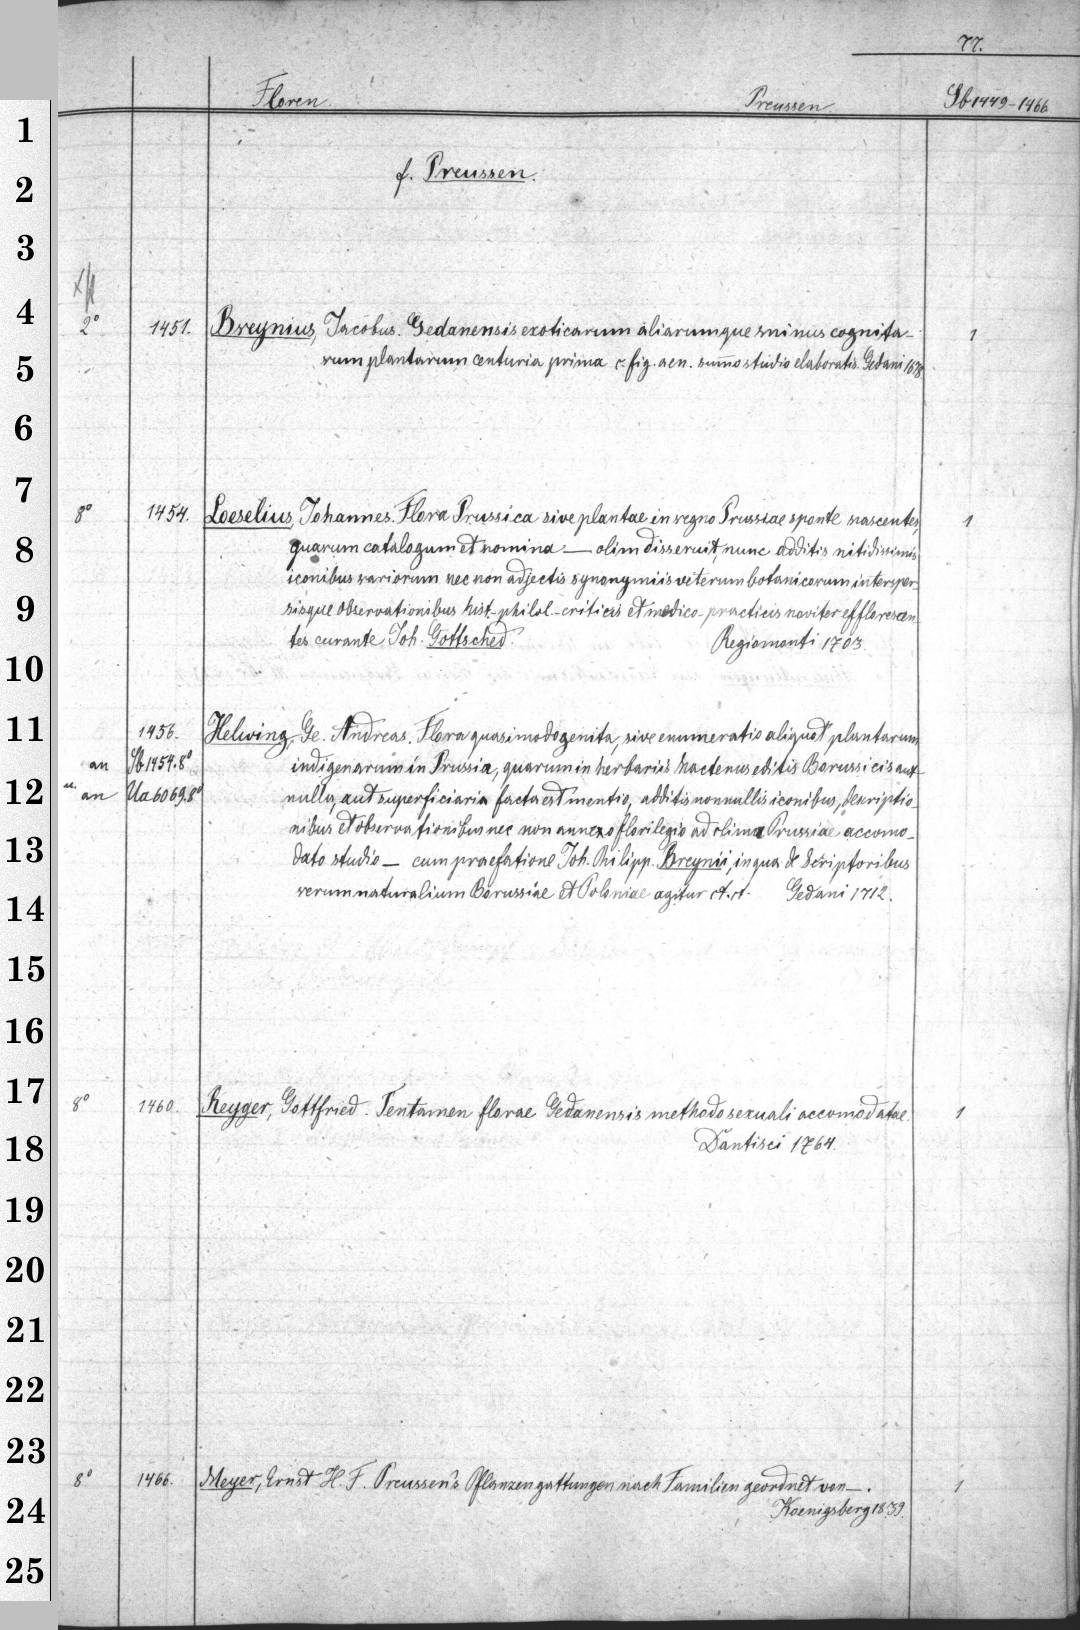 77.
Floren Preussen Sb 1449-1466
f. Preussen.
2° 1451. Breynius, Jacobus. Gedanensis exoticarum aliarumque minus cognita- 1
rum plantarum centuria prima c. fig. aen. sum̄o studio elaboratis. Gedani 1678
8° 1454. Loeselius, Johannes. Flora Prussica sive plantae in regno Prussiae sponte nascentes, 1
quarum catalogum et nomina — olim disseruit, nunc additis nitidissimis
iconibus rariorum nec non adjectis synonymiis veterum botanicorum intersper-
sisque observationibus hist.-philol.-criticis et medico-practicis noviter efflorescen-
tes curante Joh. Gottsched. Regiomonti 1703.
1456. Helwing, Ge. Andreas. Flora quasimodogenita, sive enumeratio aliquot plantarum
an Sb 1454.8° indigenarum in Prussia, quarum in herbariis hactenus editis Borussicis aut
u. an Ua 6069.8° nulla, aut superficiaria facta est mentio, additis nonnullis iconibus, descriptio-
nibus et observationibus nec non annexo florilegio ad clima Prussiae accomo-
dato studio — cum praefatione Joh. Philipp. Breynii, in qua de Scriptoribus
rerum naturalium Borussiae et Poloniae agitur rt. rt. Gedani 1712.
8° 1460. Reyger, Gottfried. Tentamen florae Gedanensis methodo sexuali accomodatae. 1
Dantisci 1764.
8° 1466. Meyer, Ernst H. F. Preussen's Pflanzengattungen nach Familien geordnet von —. 1
Koenigsberg 1839.
1
2
3
4
5
6
7
8
9
10
11
12
13
14
15
16
17
18
19
20
21
22
23
24
25